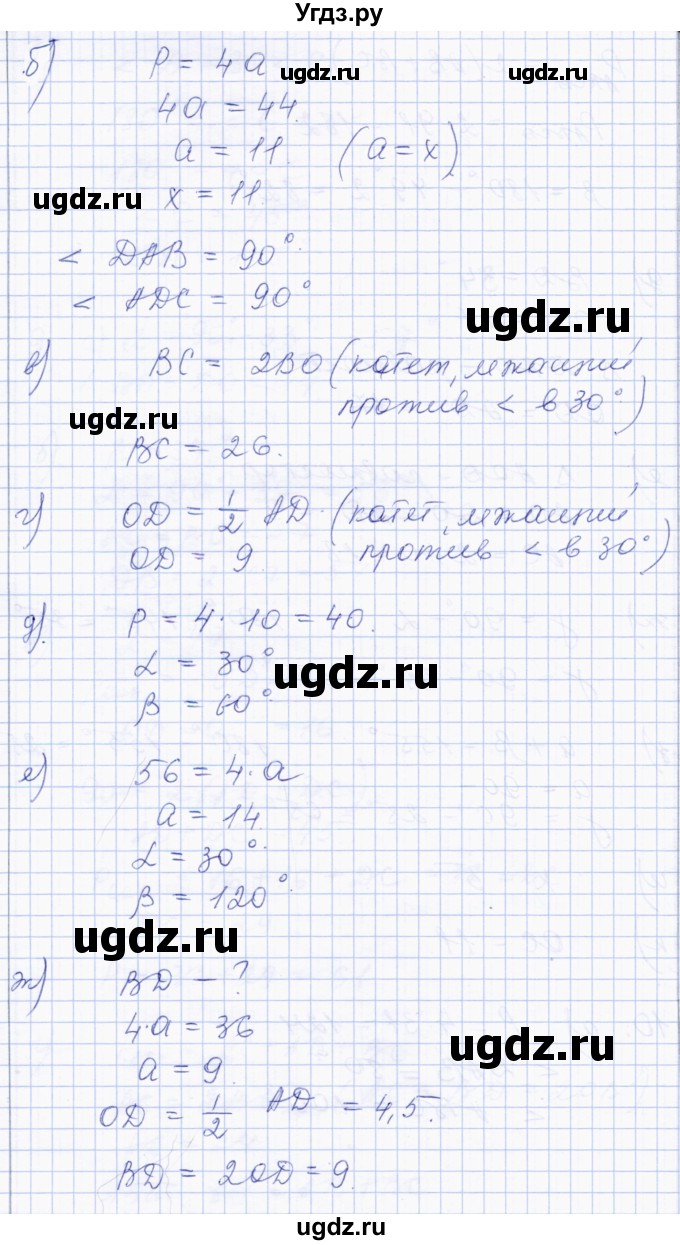 Угдз.ру
б) P = 4a
ugdz.ru ugdz.ru
4a = 44.
a = 11. (a = x)
ugdz.ru
x = 11.
< DAB = 90°.
< ADC = 90°
ugdz.ru
в) BC = 2BO (катет, лежащий
против < в 30°.)
ugdz.ru
BC = 26.
г) OD = 1/2 AD. (катет, лежащий
OD = 9. против < в 30°)
ugdz.ru
д). P = 4 · 10 = 40.
α = 30°.
ugdz.ru
β = 60°.
е) 56 = 4 · a
a = 14.
α = 30°.
β = 120°.
ugdz.ru
ж) BD – ?
4·a = 36
ugdz.ru
a = 9.
OD = 1/2 AD = 4,5.
BD = 2OD = 9.
ugdz.ru